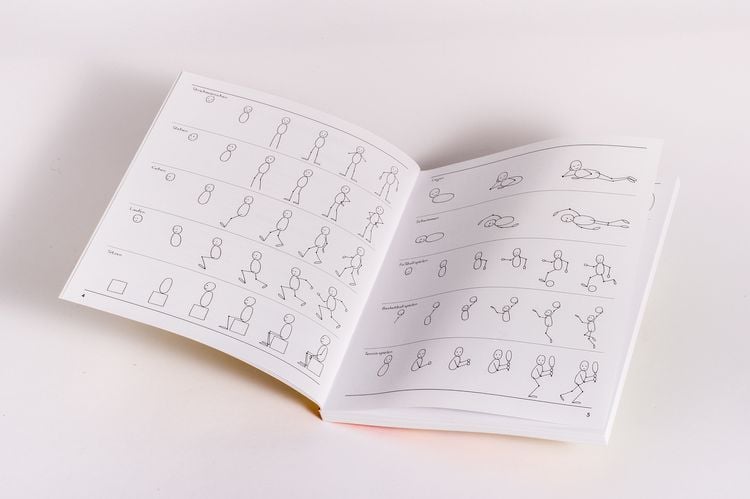 Stehen
Laufen
Sitzen
4
Liegen
Schwimmen
Fußballspielen
Basketballspielen
Tennisspielen
5